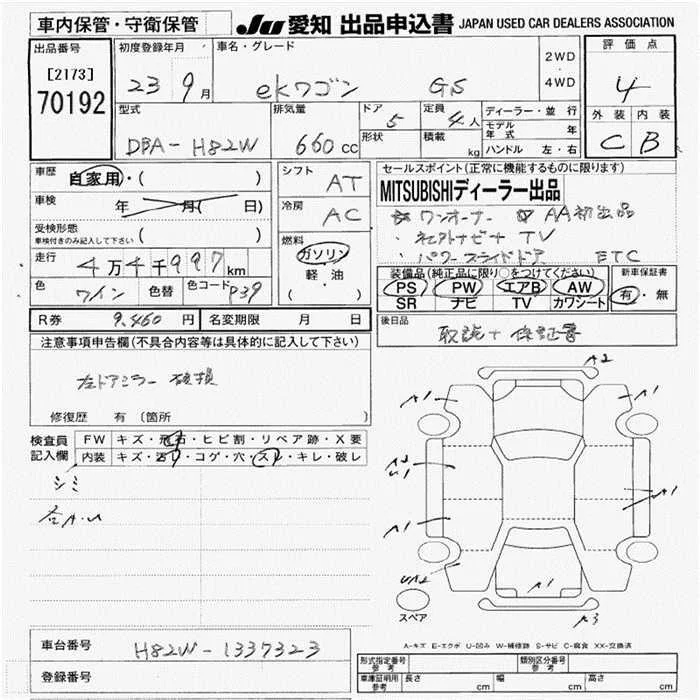 車内保管・守衛保管
JU 愛知 出品申込書 JAPAN USED CAR DEALERS ASSOCIATION
出品番号
[2173]
70192
初度登録年月
23 9月
車名・グレード
ekワゴン GS
2WD
・
4WD
評価点
4
外装 内装
C B
型式
DBA-H82W
排気量
660cc
ドア
5
形状
定員
4人
積載
kg
ディーラー・並 行
モデル年式 年
ハンドル 左・右
車歴
自家用・( )
車検
年 月( 日)
受検形態
車検付きのみ記入して下さい ( )
走行
4万4千997km
色
ワイン
色替
色コード
P39
シフト
AT
冷房
AC
燃料
ガソリン
軽・油
( ・ )
セールスポイント(正常に機能するものに限ります)
MITSUBISHIディーラー出品
ワンオーナー AA初出品
TV
・パワースライドドア ETC
装備品(純正品に限り○をつけてください)
PS PW エアB AW
SR ナビ TV カワシート
新車保証書
有・無
R券 9,460円
名変期限 月 日
後日品
取説+保証書
注意事項申告欄(不具合内容等は具体的に記入して下さい)
左ドアミラー 破損
修復歴 有〔箇所 〕
検査員
記入欄
FW キズ・飛石・ヒビ割・リペア跡・X要
内装 キズ・汚れ・コゲ・穴・スレ・キレ・破レ
シミ
A2
A1
A1
A1
A1
A1
A3
UA2
スペア
A-キズ E-エクボ U-凹み W-補修跡 S-サビ C-腐食 XX-交換済
車台番号
H82W-1337323
登録番号
形式指定番号
参考
類別区分番号
参考
車庫証明用
参考
長さ cm
幅 cm
高さ cm